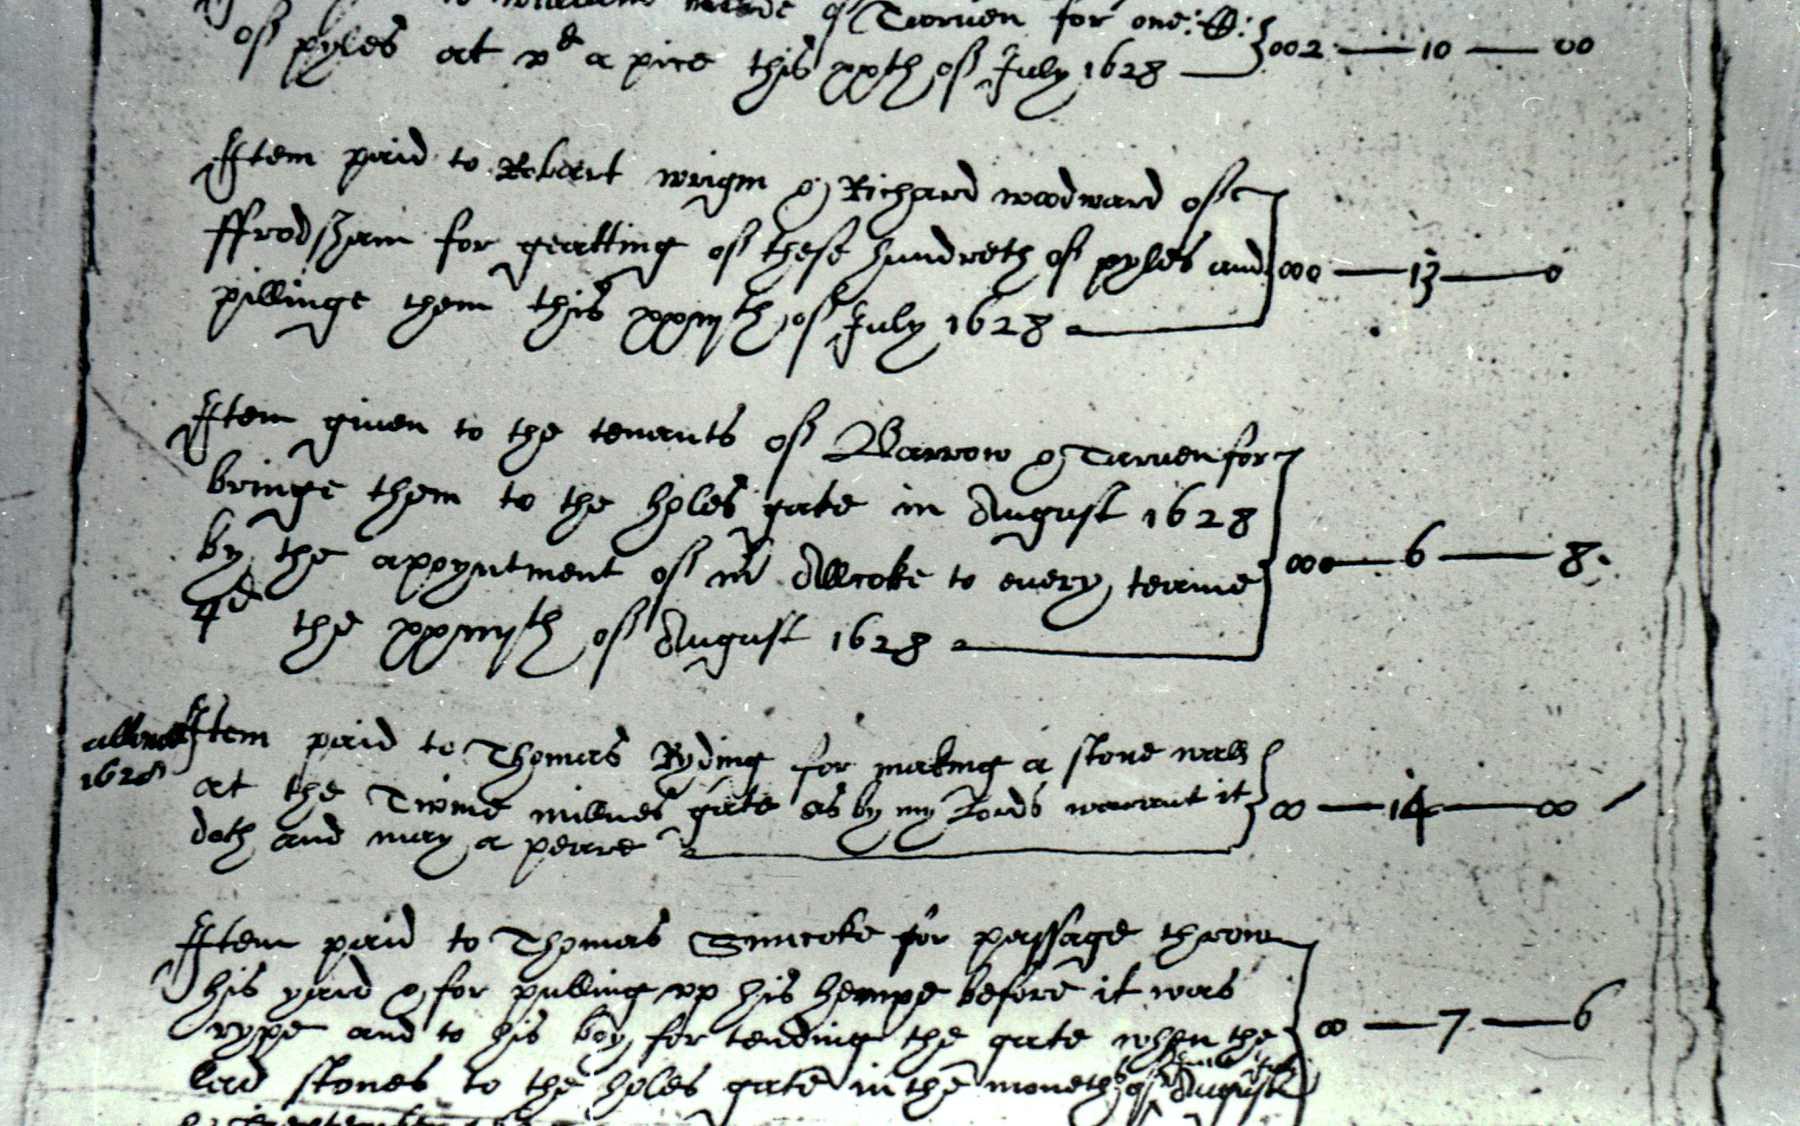 of Tarven for one: C:
of pyles at vd a pice this xxth of July 1628 002 — 10 — 00
Item paid to Robart wrigm & Richard woodward of
ffrodsham for geatting of these hundreth of pyles and 000 — 13 — 0
pillinge them this xxiijth of July 1628
Item given to the tenants of Barrow & Tarven for
bringe them to the holes gate in August 1628
by the apoyntment of mr Allcoke to every teame 000 — 6 — 8
4d the xxiiijth of August 1628
allowed Item paid to Thomas Ryding for making a stone wall
1628 at the Twine millnes gate as by my Lords warrant it 00 — 14 — 00
doth and may a peare
Item paid to Thomas Simcoke for passage throw
his yard & for pulling vp his hempe before it was
rype and to his boy for tending the gate when the 00 — 7 — 6
lead stones to the holes gate in the moneth of August